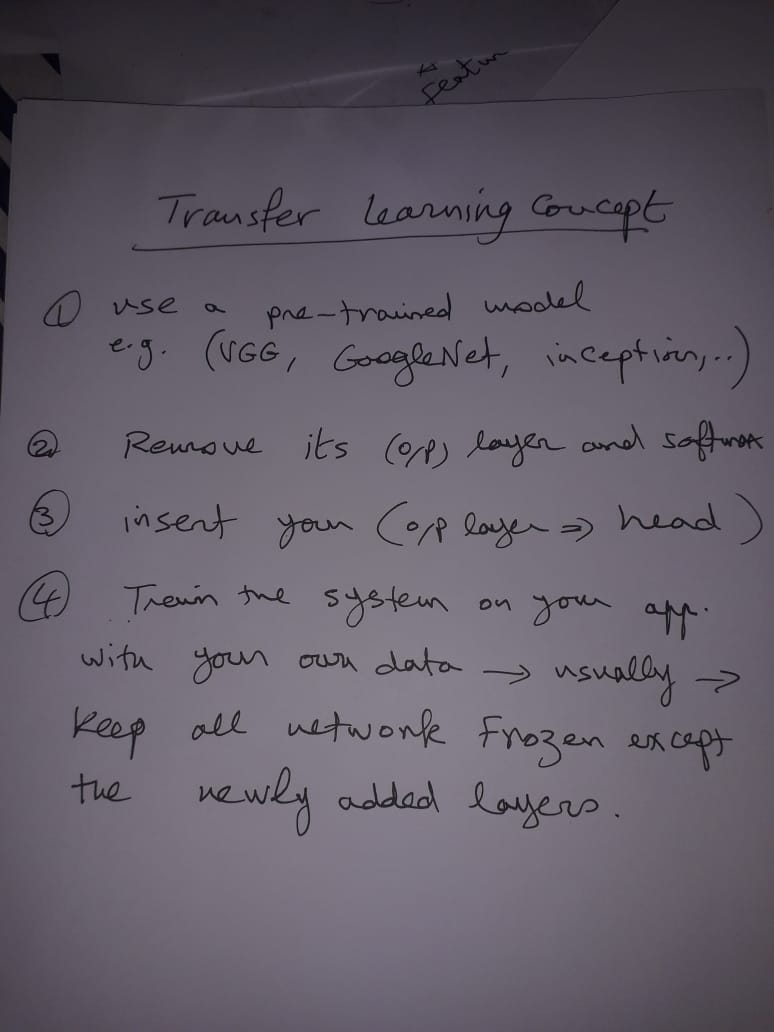 Transfer Learning Concept
① use a pre-trained model
e.g. (VGG, GoogleNet, inception,..)
② Remove its (o/p) layer and softmax
③ insert your (o/p layer ⇒ head)
④ Train the system on your app.
with your own data → usually →
Keep all network Frozen except
the newly added layers.